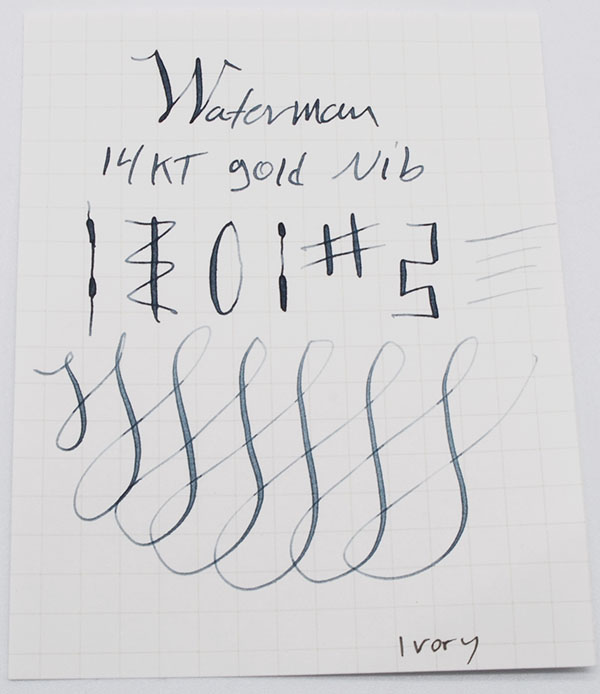 Waterman
14KT gold Nib
Ivory